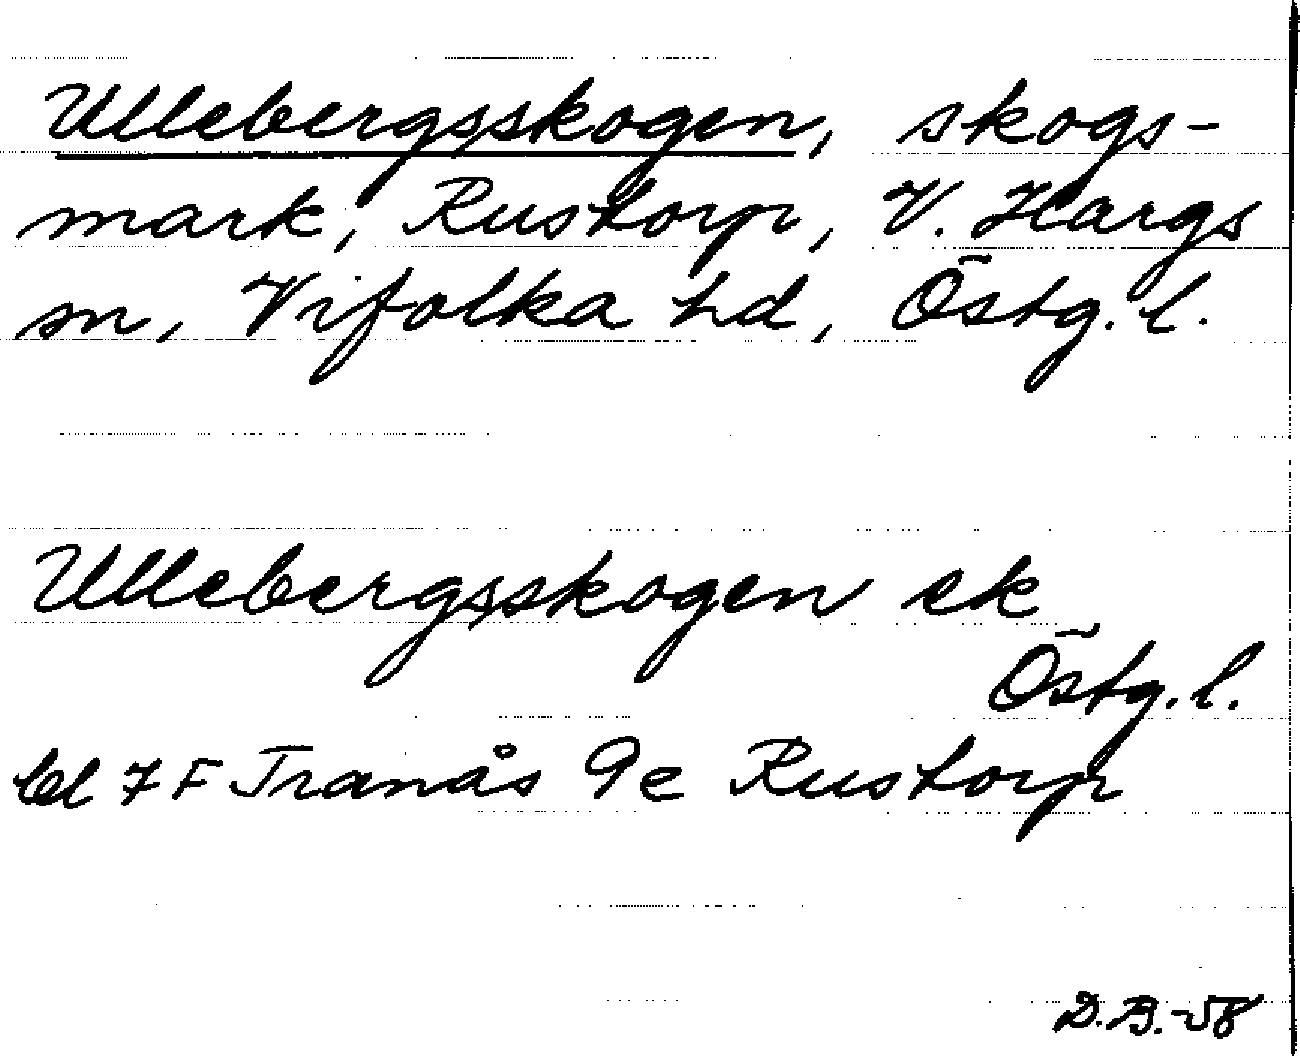 Ullebergsskogen, skogs-
mark, Rustorp, V. Hargs
sn, Vifolka hd, Östg. l.
Ullebergsskogen ek
Östg. l.
bl 7 F Tranås 9e Rustorp
D.B.-58